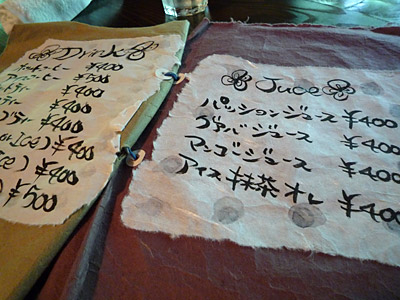 Drink
¥400
¥500
ティー ¥400
ティー ¥400
ティー ¥400
or Ice) ¥400
Ice) ¥400
) ¥500
Juce
パッションジュース ¥400
グァバジュース ¥400
マンゴージュース ¥400
アイス抹茶オレ ¥400